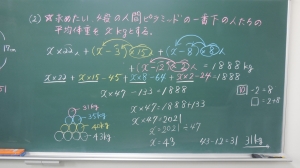 (2) 求めたい4段の人間ピラミードの一番下の人たちの
平均体重を xkgとする。
x×22人+(x-3)×15人+(x-8)×8人
+(x-12)×2人=1888kg
x×22+x×15-45+x×8-64+x×2-24=1888
x×47-133=1888
x×47=1888+133
x×47=2021
x=2021÷47
x=43
43-12=31
31kg
31kg
35kg
40kg
43kg
□-2=8
□=2+8